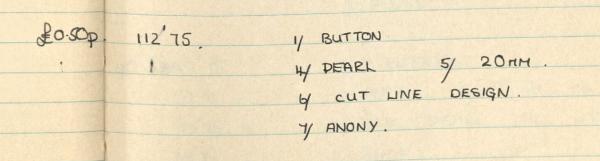 £0.50p. 112'75. 1/ BUTTON
4/ PEARL 5/ 20MM.
6/ CUT LINE DESIGN.
7/ ANONY.